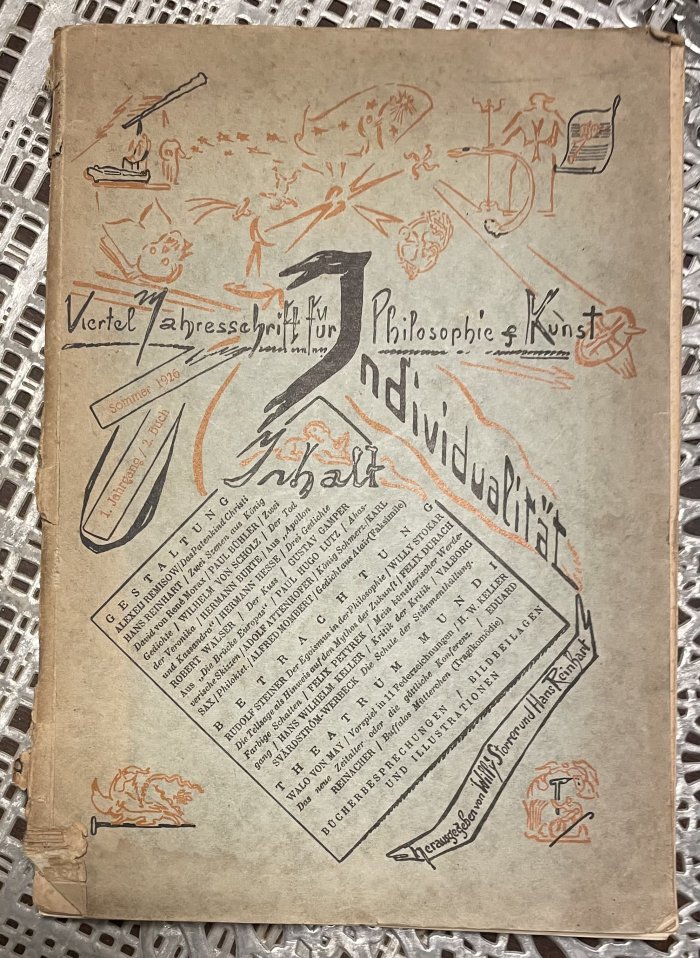 Viertel Jahresschrift für Philosophie & Kunst
Individualität
Sommer 1926
1. Jahrgang / 2. Buch
Inhalt
GESTALTUNG
ALEXEIJ REMISOW / Das Patenkind Christi
HANS REINHART / Zwei Szenen aus König
David von René Morax / PAUL BÜHLER / Zwei
Gedichte / WILHELM VON SCHOLZ / Der Tod
der Veronika / HERMANN BURTE / Aus „Apollon
und Kassandra“ / HERMANN HESSE / Drei Gedichte
Aus „Die Brücke Europas“ / GUSTAV GAMPER
ROBERT WALSER / Der Kuss / PAUL HUGO LUTZ / Ahas-
verische Skizzen / ADOLF ATTENHOFER / König Sohmerz / KARL
SAX / Philoktet / ALFRED MOMBERT / Gedicht aus Atair (Faksimile)
BETRACHTUNG
RUDOLF STEINER Der Egoismus in der Philosophie / WILLY STOKAR
Die Tellsage als Hinweis auf den Mythos der Zukunft / FELIX DURACH
Farbige Schatten / FELIX PETYREK / Mein künstlerischer Werde-
gang / HANS WILHELM KELLER / Kritik der Kritik / VALBORG
SVÄRDSTRÖM-WERBECK Die Schule der Stimmenthüllung.
THEATRUM MUNDI
WALO VON MAY / Vorspiel in 11 Federzeichnungen / H. W. KELLER
Das neue Zeitalter oder die göttliche Konferenz. / EDUARD
REINACHER / Buffalos Mütterchen (Tragikomödie)
BÜCHERBESPRECHUNGEN / BILDBEILAGEN
UND ILLUSTRATIONEN
herausgegeben von Willy Storrer und Hans Reinhart